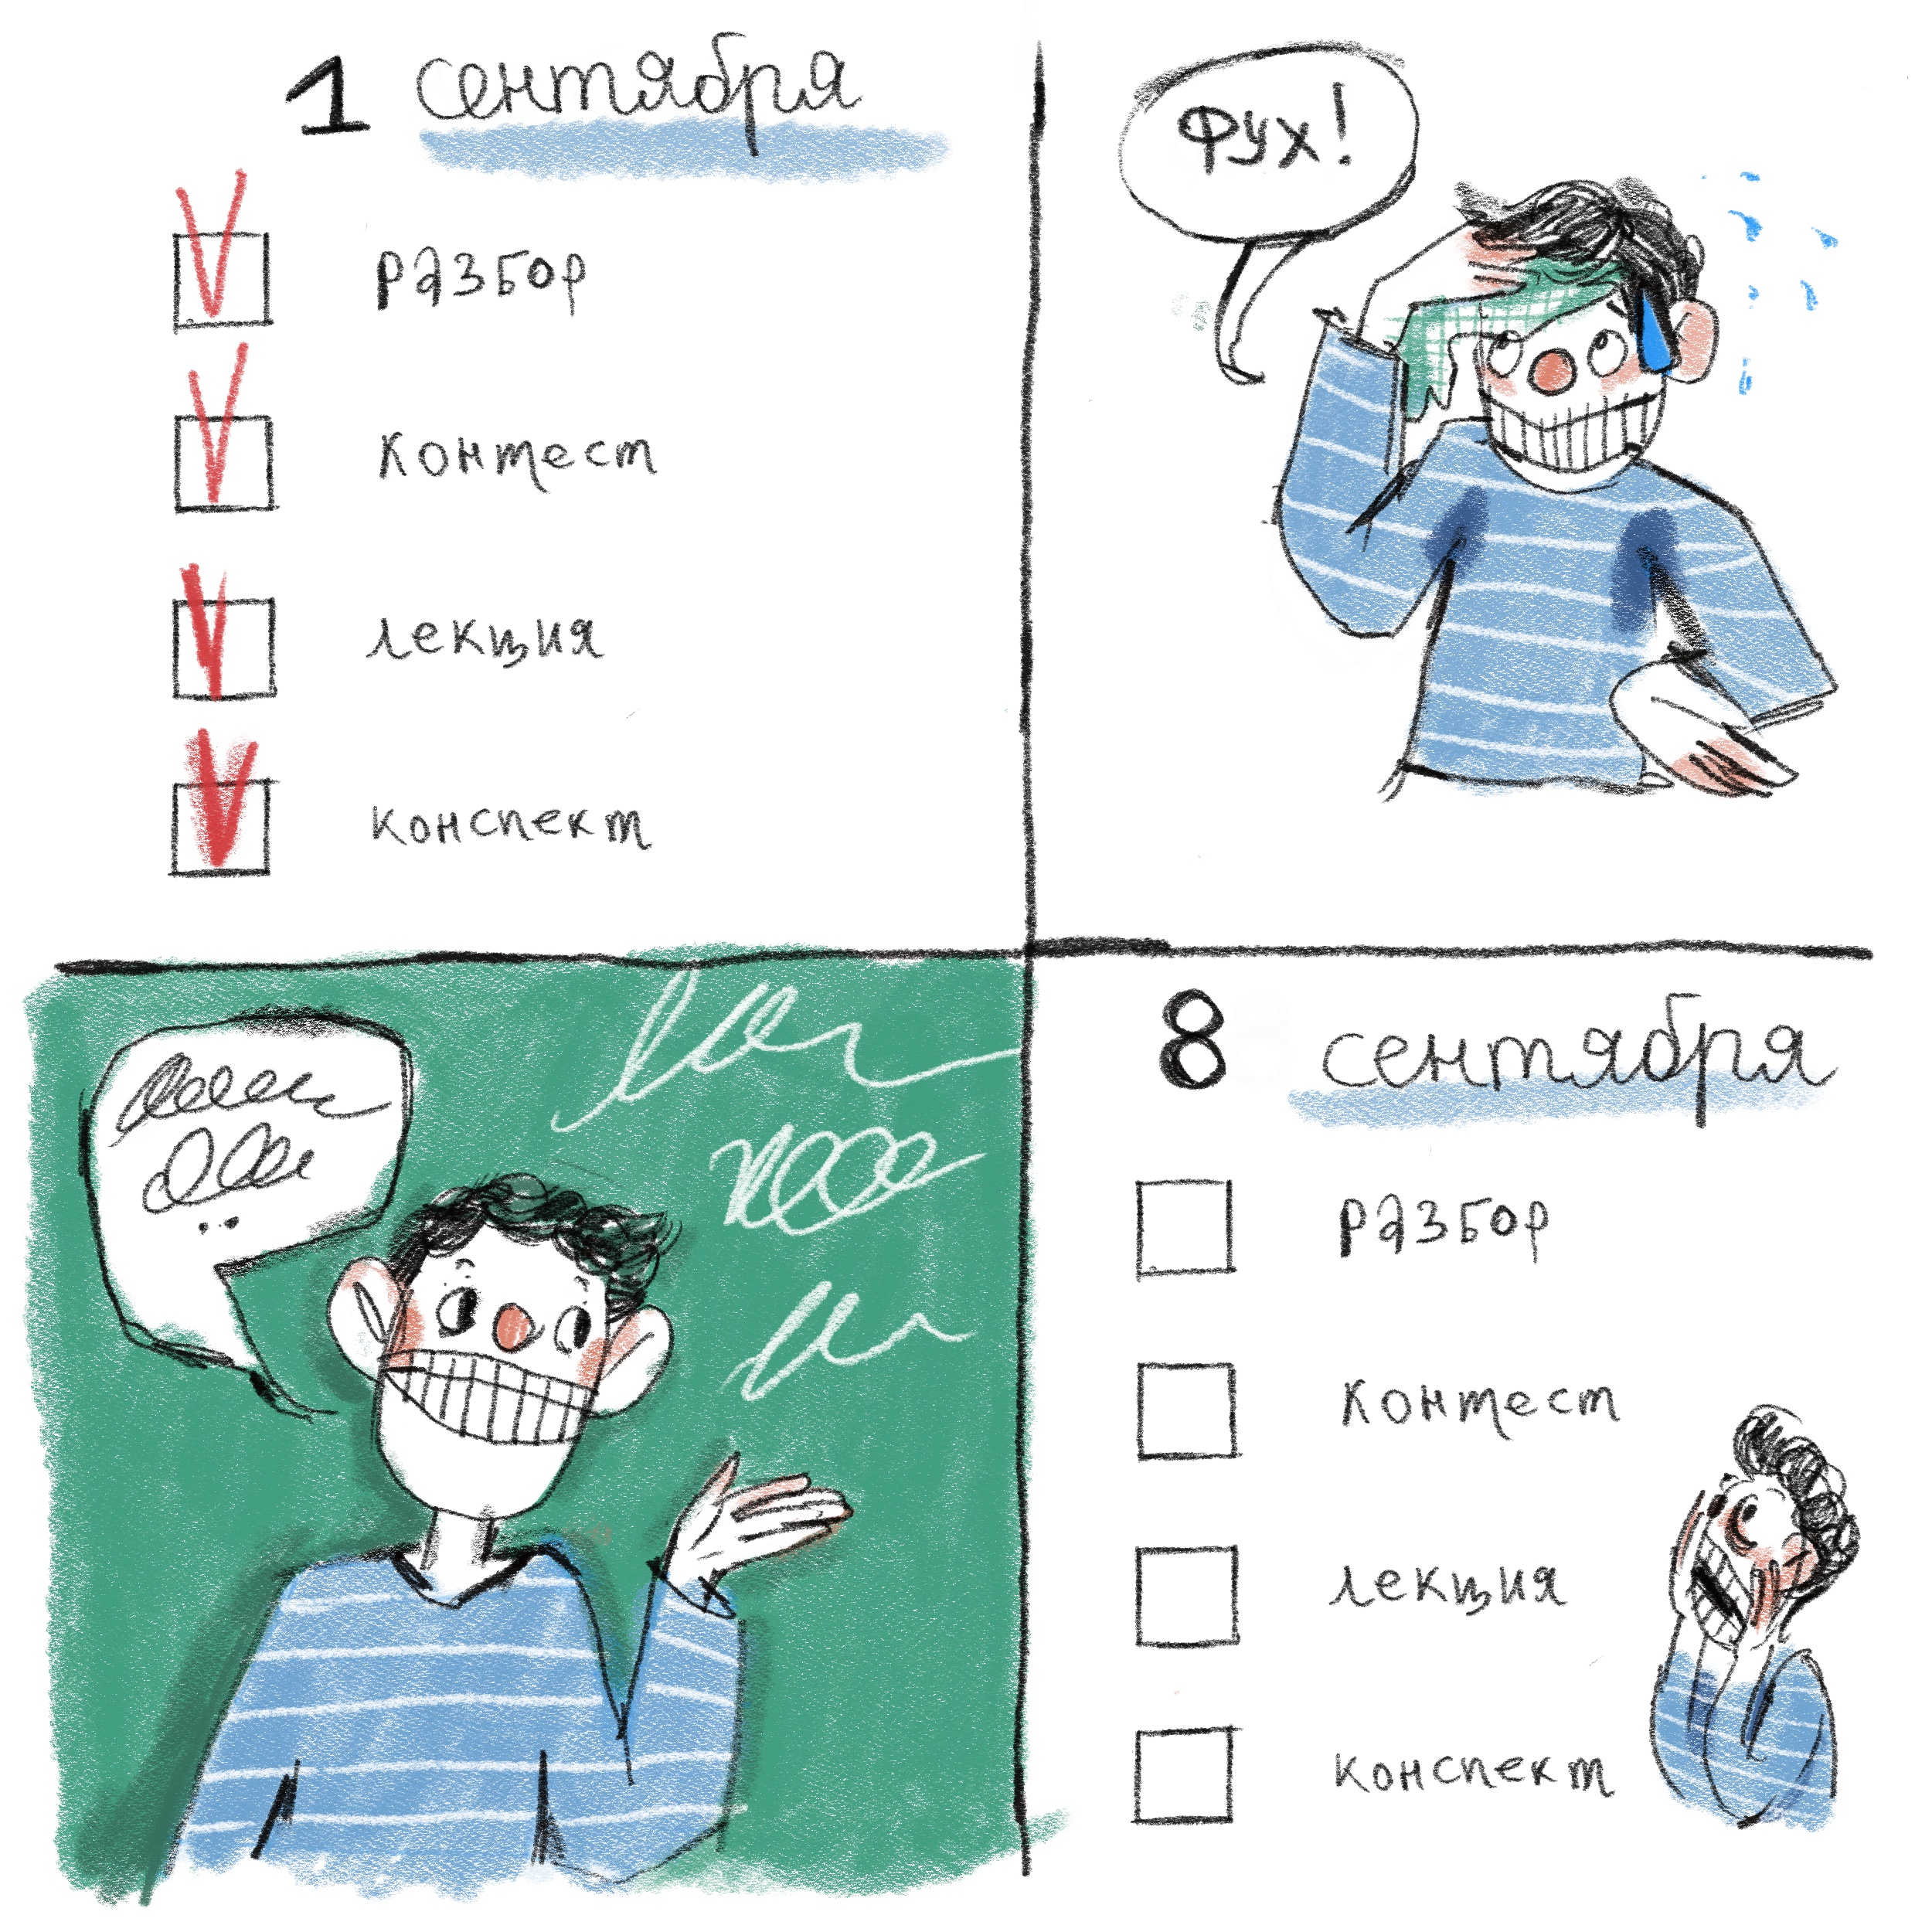 1 сентября
разбор
контест
лекция
конспект
Фух!
8 сентября
разбор
контест
лекция
конспект